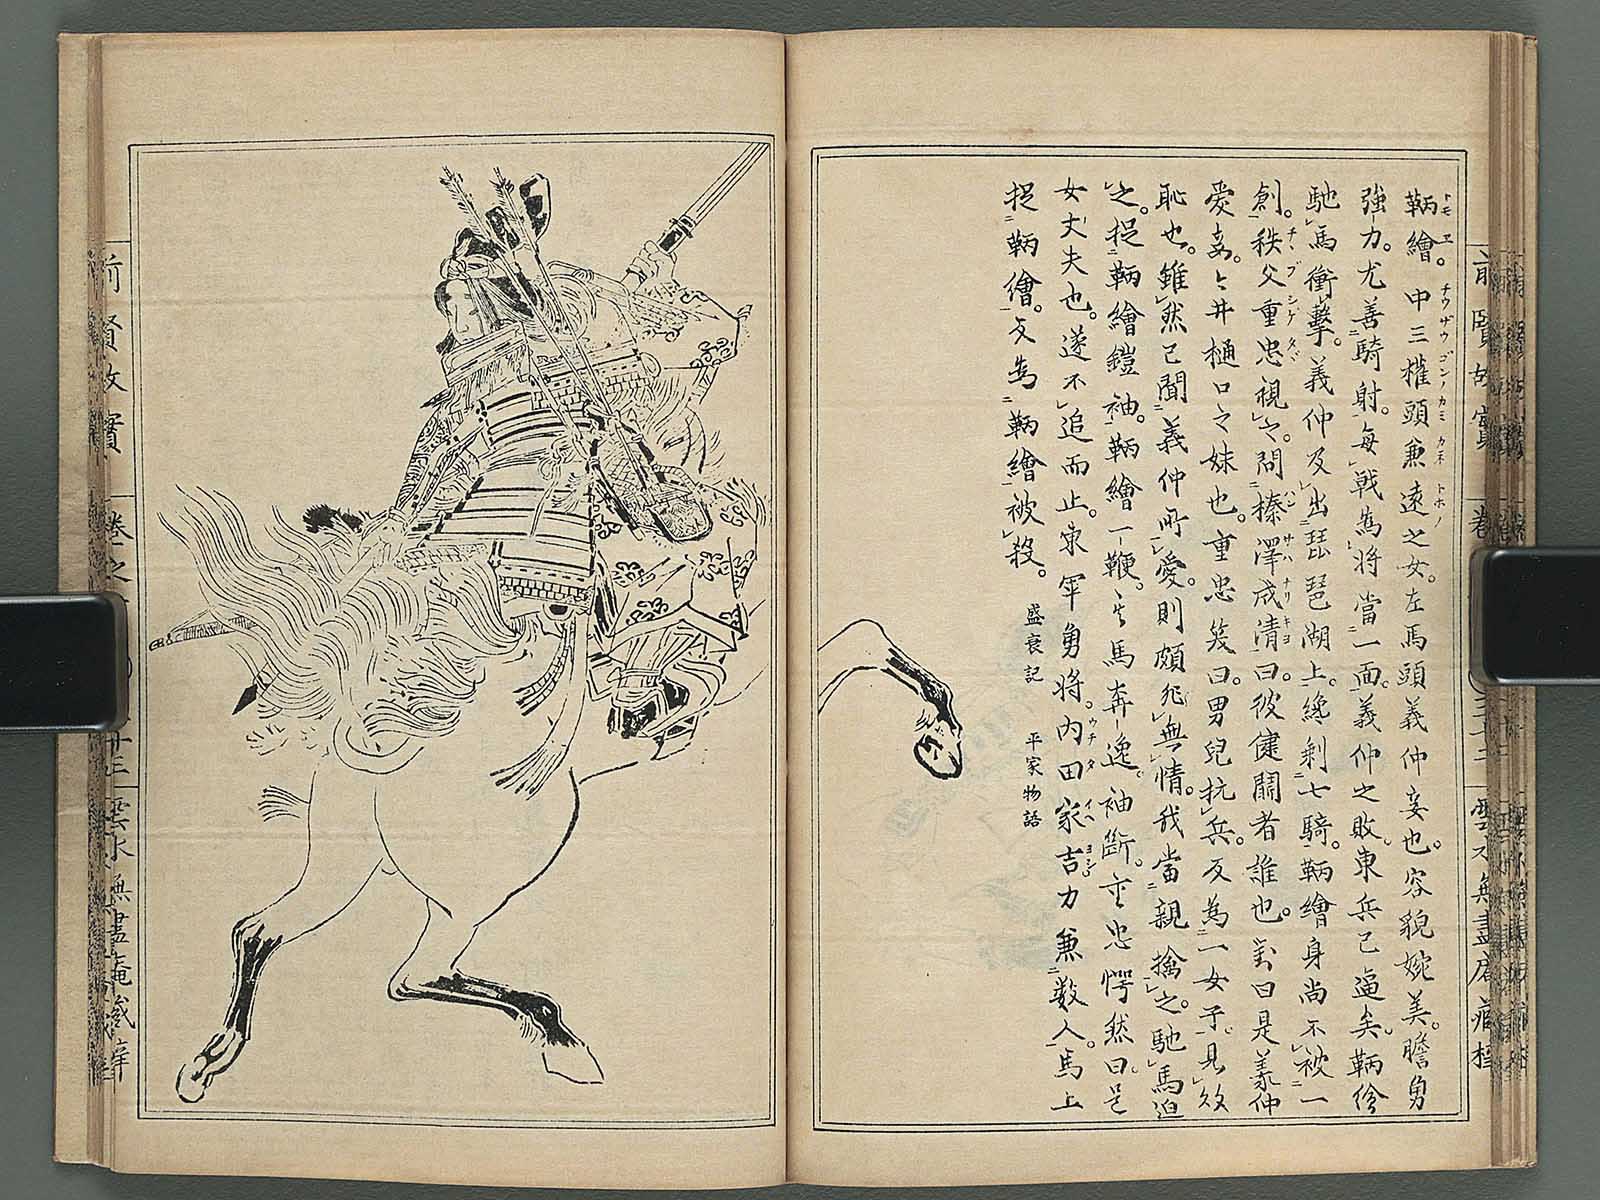 鞆繪。中三權頭兼遠之女。左馬頭義仲妾也。容貌婉美。膽勇
強力。尤善騎射。每戰爲將當一面。義仲之敗。東兵已逼矣。鞆繪
馳馬衝擊。義仲及出琵琶湖上。纔剩七騎。鞆繪身尚不被一
創。秩父重忠視之。問榛澤成清曰。彼健鬪者誰也。對曰是義仲
愛妾。今井樋口之妹也。重忠笑曰。男兒抗兵。反為一女子見敗
恥也。雖然已聞義仲所愛。則頗无無情。我當親擒之。馳馬迫
之。捉鞆繪鎧袖。鞆繪一鞭。其馬奔逸。袖斷。重忠愕然曰。是
女丈夫也。遂不追而止。東軍勇將。内田家吉力兼數人。馬上
捉鞆繪。反為鞆繪被殺。
盛衰記　平家物語
前賢故實
卷之
雲水無盡庵藏梓